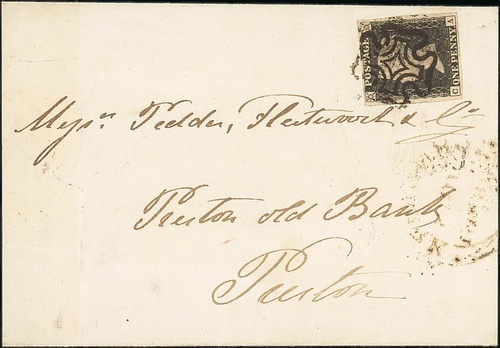 POSTAGE
C A
ONE PENNY
Messrs. Pedder, Fleetwood & Co
Preston old Bank
Preston